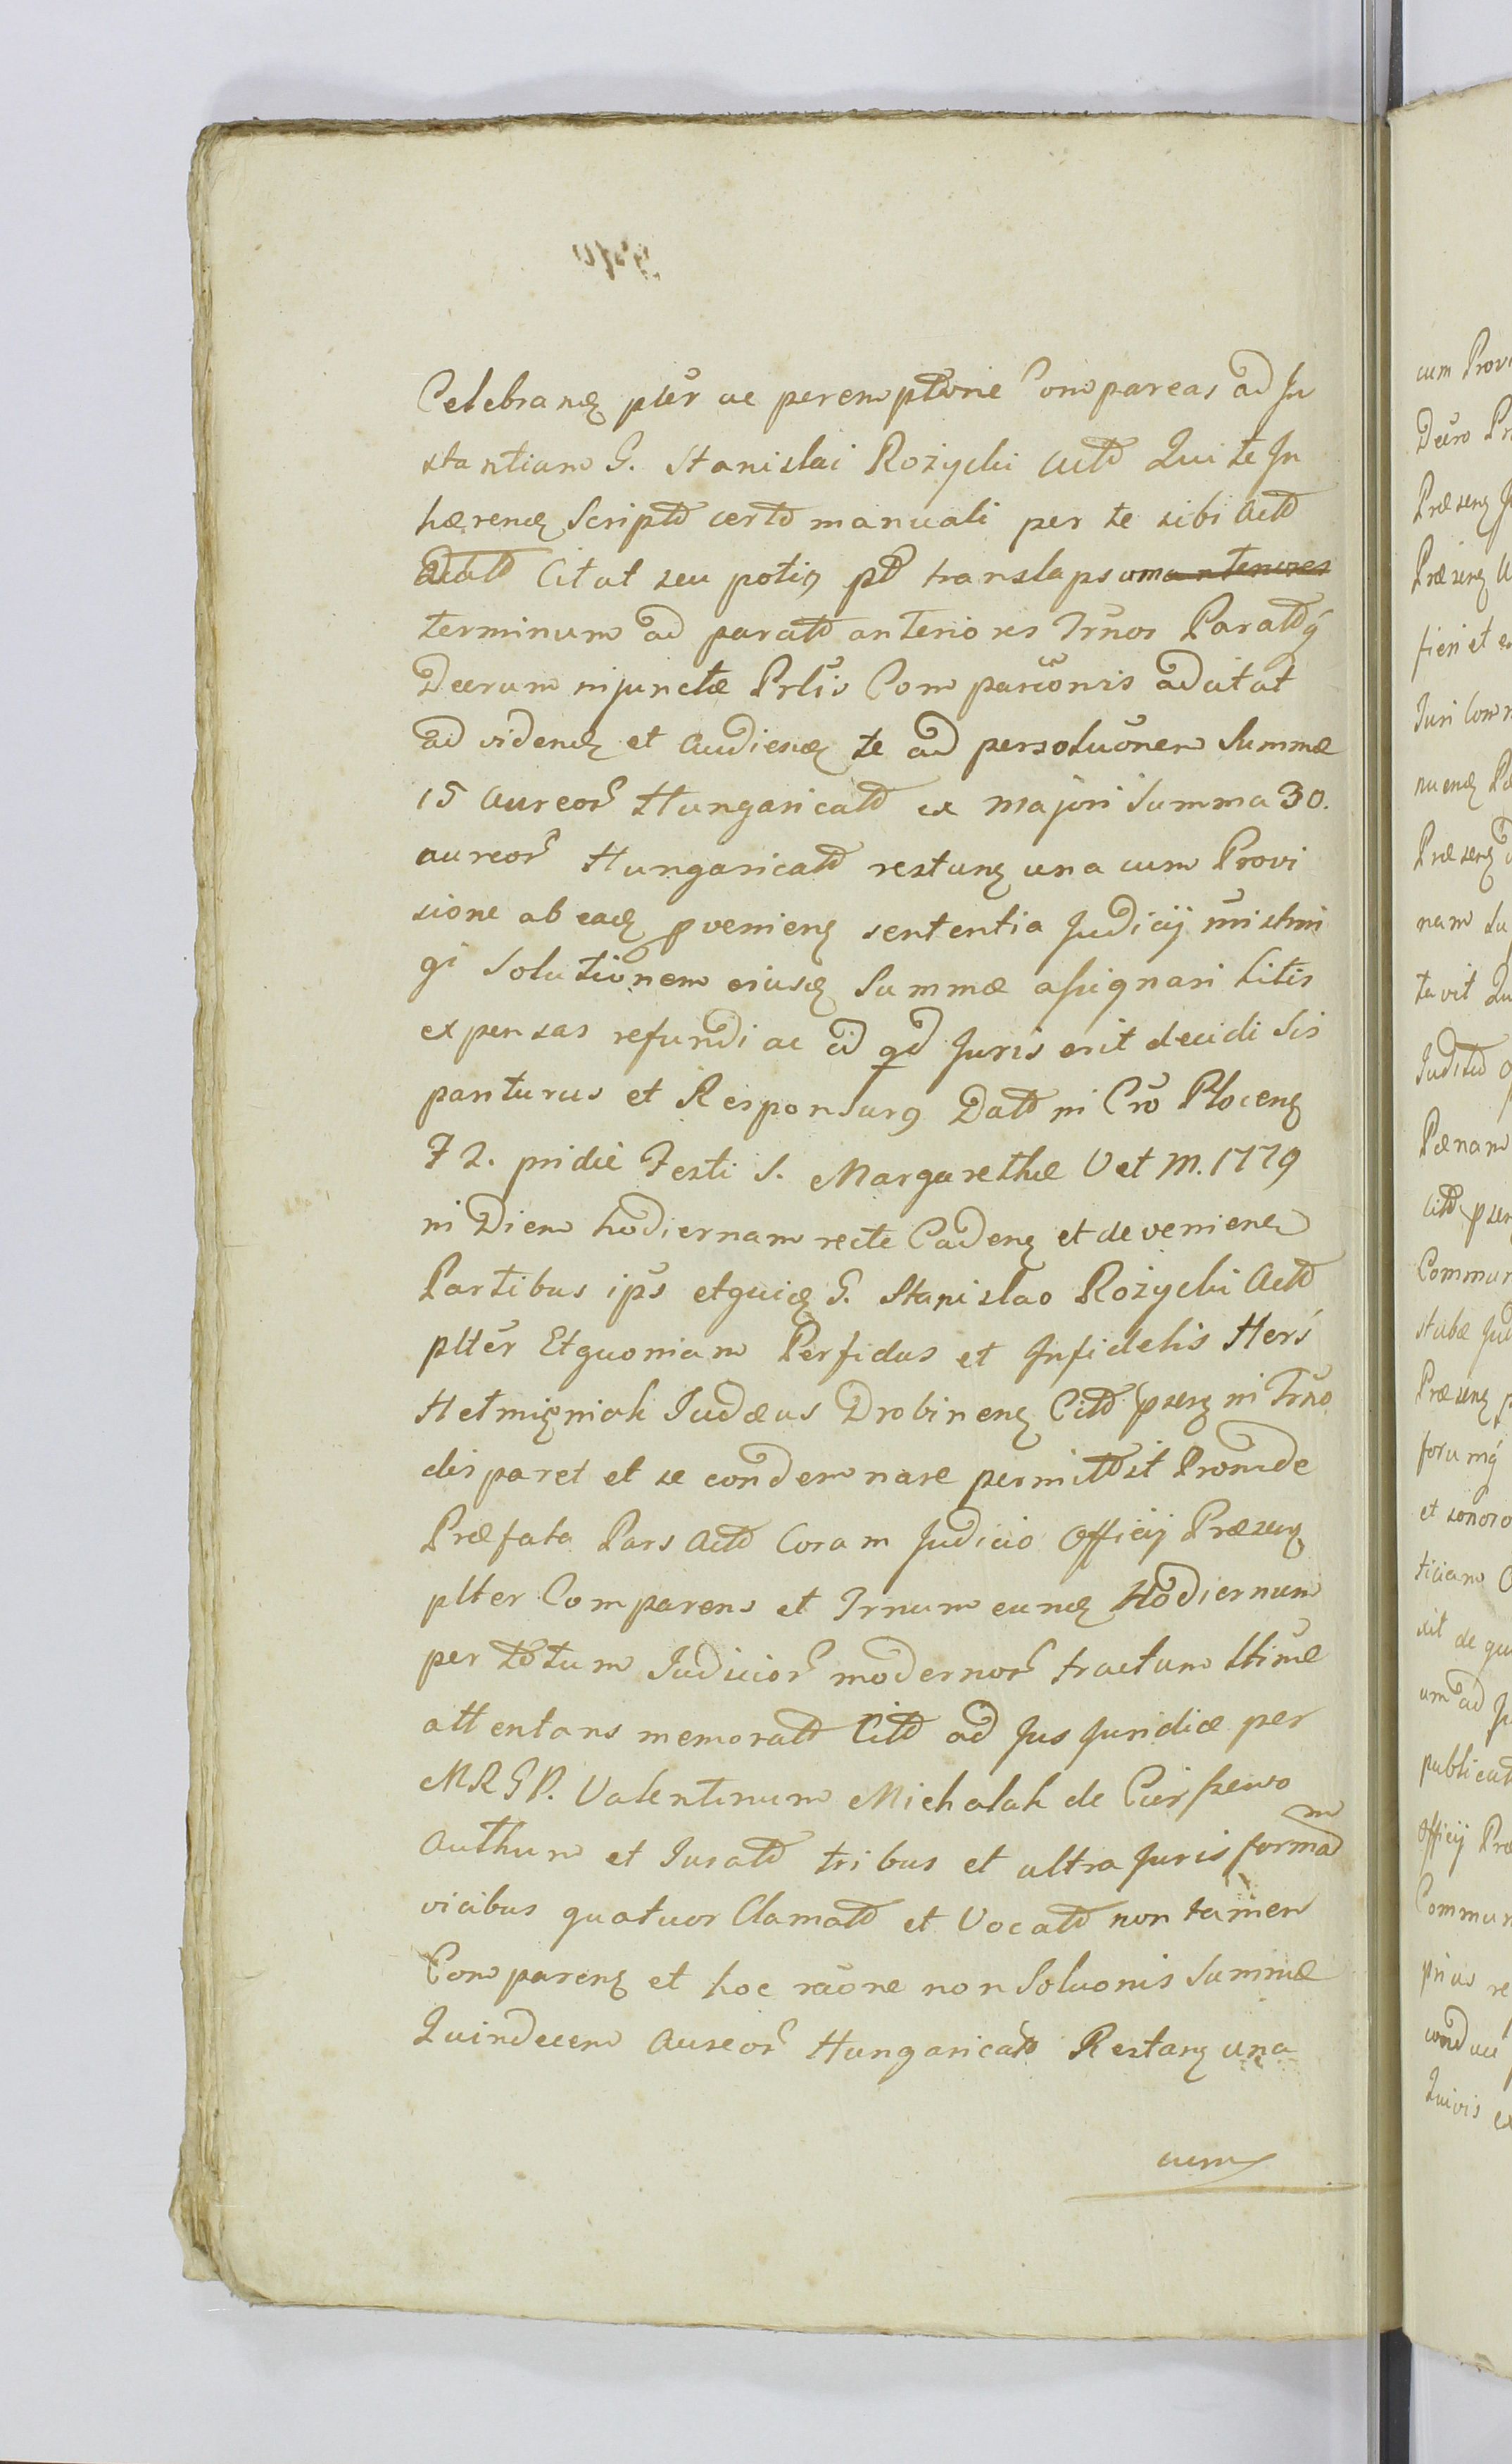 Celebranꝫ pltėr ac peremptorie Compareas ad In
stantiam G. Stanislai Rożycki Actō Qui te In
hærenꝫ Scriptō certō manuali per te sibi Actō
Datō Citat seu potiꝰ post translapsum anteriores
terminum ad paratō anteriores Trnos Paratōq́
Decrum injunctæ Prlis Comparōnis adcitat
ad videnꝫ et Audienꝫ te ad persoluōnem Summæ
15 Aureor Hungaricalō ex majori Summa 30.
aureor Hungaricalō restanꝫ una cum Provi
sione ab eadꝫ pvenienꝫ sententia Judicij
gi Solutionem eiusdꝫ Summæ assignari Litis
expensas refundi ac id qd Juris erit decidi Sis
pariturus et Responsurꝰ Datō in Cro Plocenꝫ
F 2. pridie Festi S. Margarethæ V et M. 1779
in Diem hodiernam recte Cadenꝫ et devenienꝫ
Partibus ips etquidꝫ G. Stanislao Rożycki Actō
pltėr Etquoniam Perfidus et Infidelis Herś
Judæus Drobinenꝫ Citō psenꝫ in Trno
disparet et se condemnare permittit Proinde
Præfata Pars Actō Coram Judicio Officij Præsenꝫ
plter Comparens et Trnum eundꝫ Hodiernum
per totum Judicior modernor tractum ltime
attentans memoratō Citō ad Jus Juridice per
MRGP. Valentinum Michalak de
Authum et Juratō tribus et ultra Juris formam
vicibus quatuor Clamatō et Vocatō non tamen
Comparenꝫ et hoc raōne non Soluonis Summæ
Quindecem Aureor Hungaricalō Restanꝫ una
cum
cum Provi
Decro Pr
Præsenꝫ
Præsenꝫ
fieri et
Juri Com
nuenꝫ
Præsenꝫ
nam Su
tavit Qu
Juditō
Pænam
Citō psen
Commun
stubæ Jud
Præsenꝫ
forumq́
et sonoro
ticiam
xit de qu
um ad Ju
publicat
Officij Præ
Commun
prius re
Quivis ex